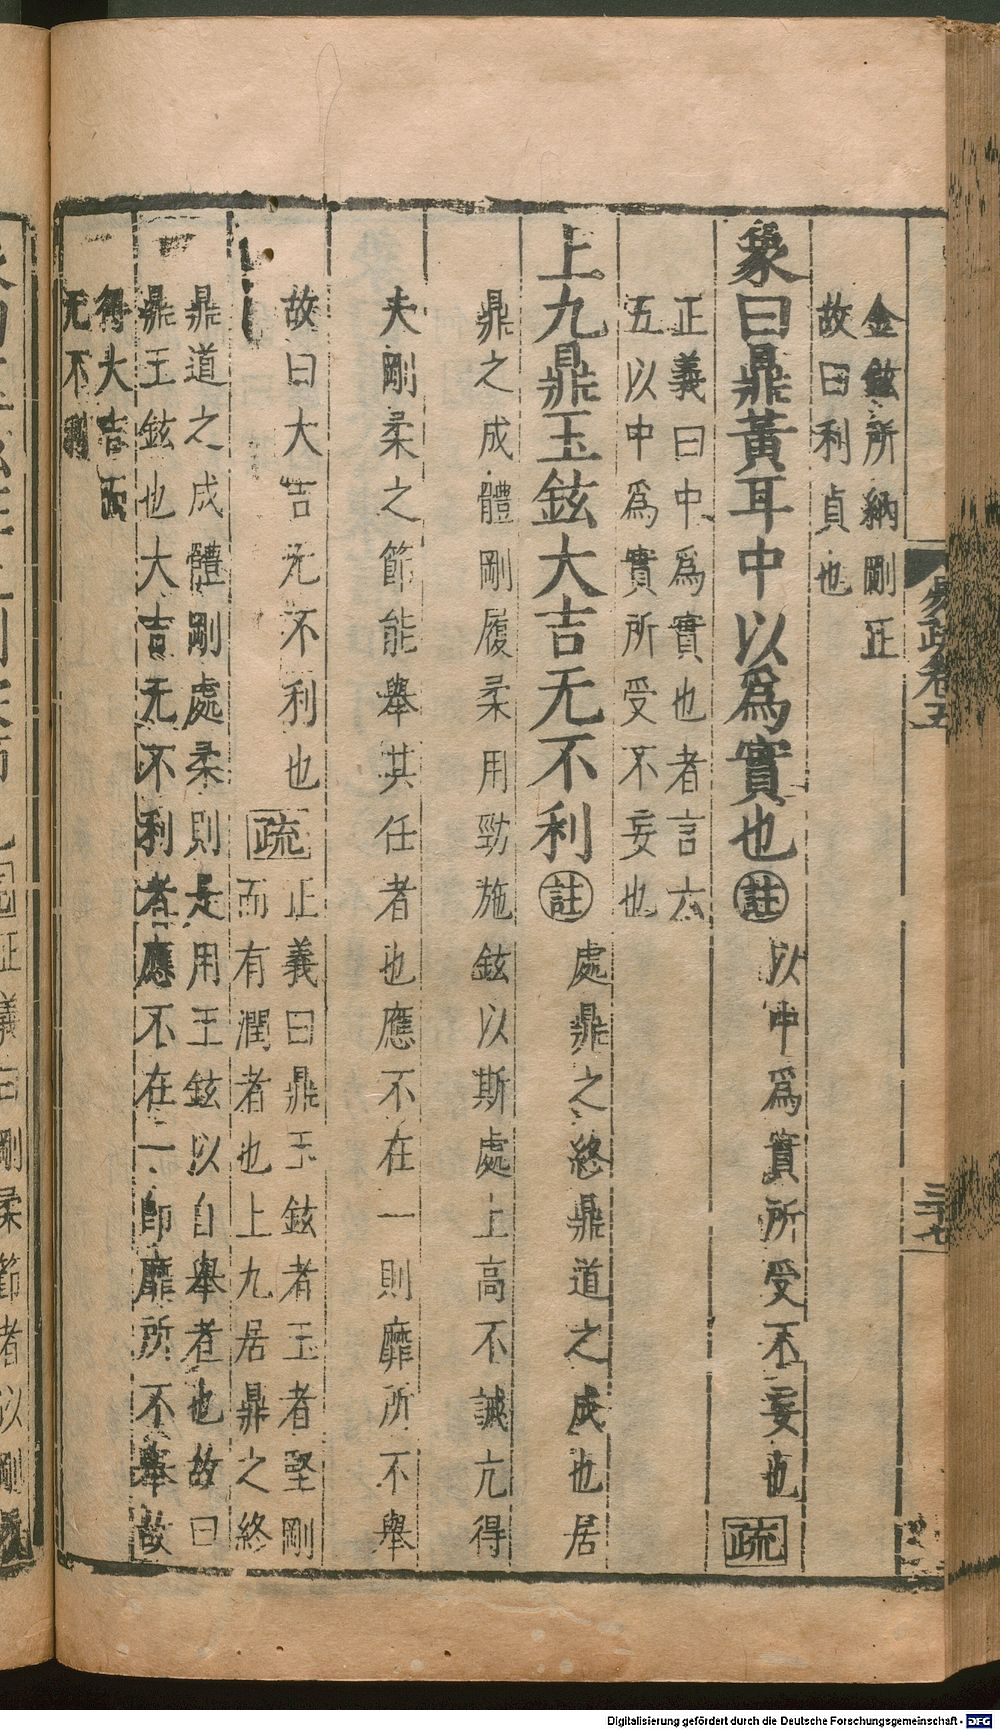 金鉉所納剛正
故曰利貞也
象曰鼎黃耳中以爲實也註以中爲實所受不妄也疏
正義曰中爲實也者言六
五以中爲實所受不妄也
上九鼎玉鉉大吉无不利註處鼎之終鼎道之成也居
鼎之成體剛履柔用勁施鉉以斯處上高不誠亢得
夫剛柔之節能舉其任者也應不在一則靡所不舉
故曰大吉无不利也疏正義曰鼎玉鉉者玉者堅剛
而有潤者也上九居鼎之終
鼎道之成體剛處柔則是用玉鉉以自舉者也故曰
鼎王鉉也大吉无不利者應不在一卽靡所不舉故
得大吉而
无不利
易疏卷五
三十七
Digitalisierung gefördert durch die Deutsche Forschungsgemeinschaft - DFG